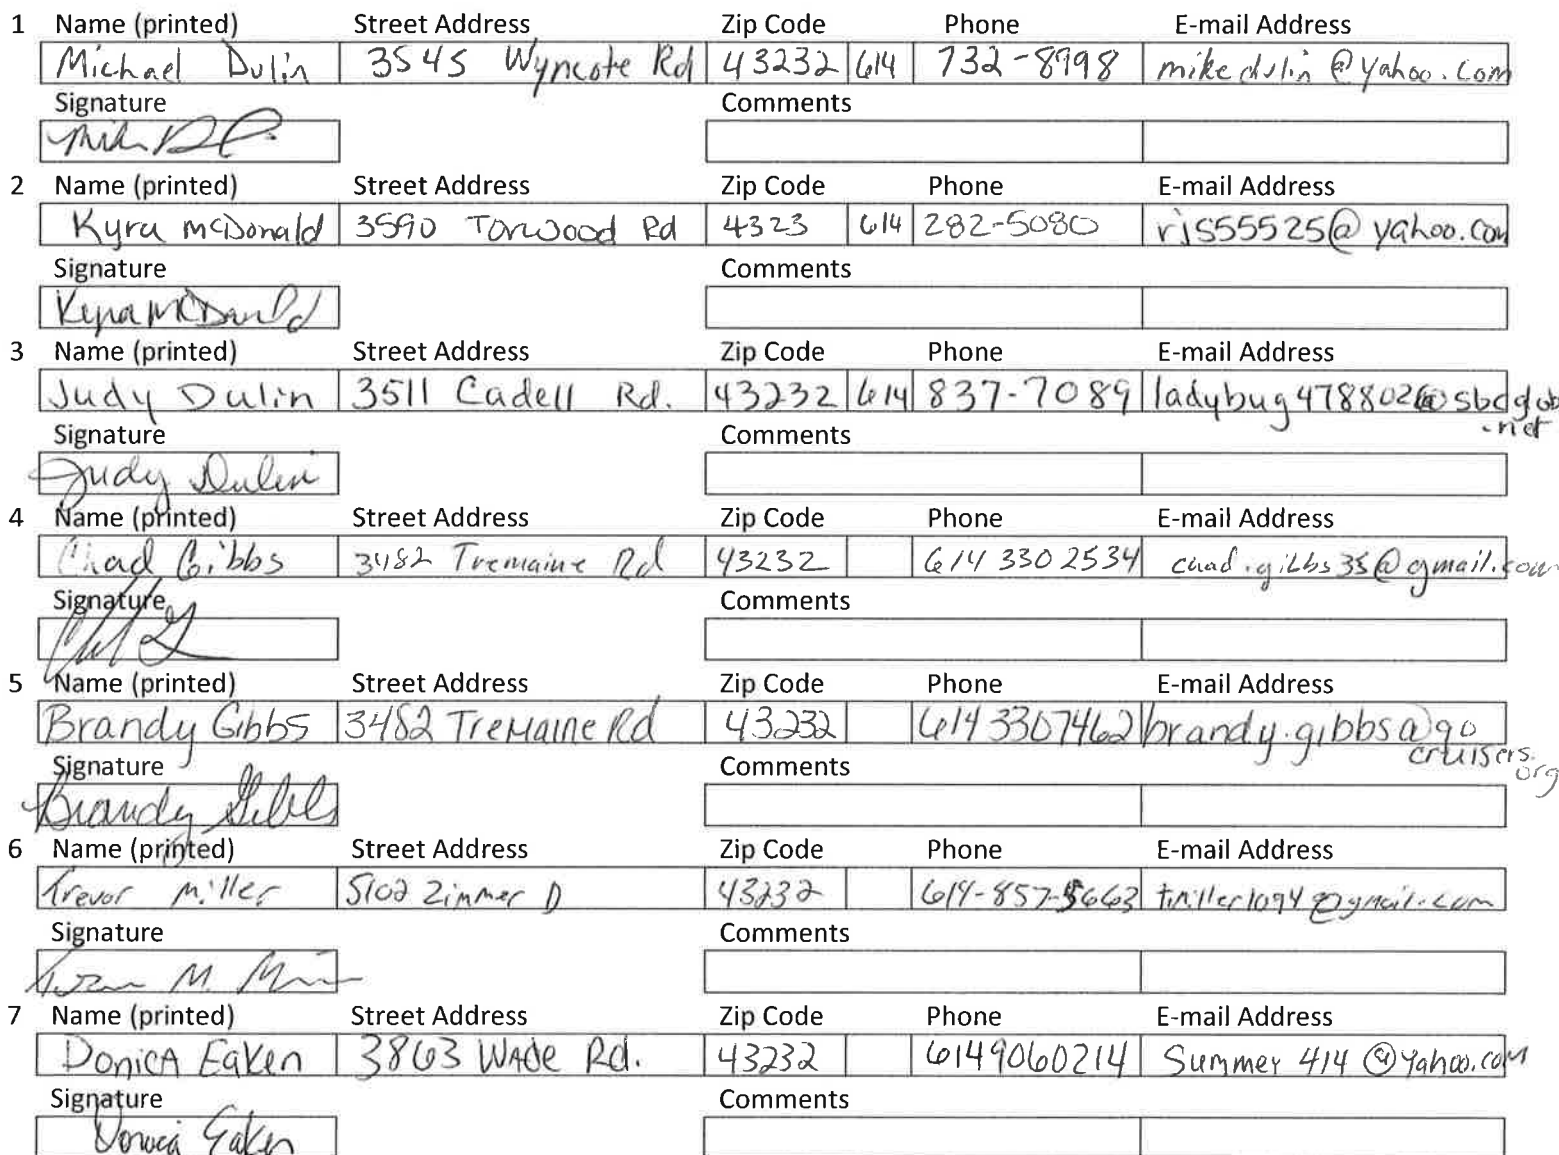 1 Name (printed) Street Address Zip Code Phone E-mail Address
Michael Dulin 3545 Wyncote Rd 43232 614 732-8998 mikedulin@yahoo.com
Signature Comments
2 Name (printed) Street Address Zip Code Phone E-mail Address
Kyra McDonald 3590 Torwood Rd 4323 614 282-5080 rjs55525@yahoo.com
Signature Comments
Kyra McDonald
3 Name (printed) Street Address Zip Code Phone E-mail Address
Judy Dulin 3511 Cadell Rd. 43232 614 837-7089 ladybug478802@sbcglob
.net
Signature Comments
Judy Dulin
4 Name (printed) Street Address Zip Code Phone E-mail Address
Chad Gibbs 3482 Tremaine Rd 43232 614 330 2534 chad.gibbs35@gmail.com
Signature Comments
5 Name (printed) Street Address Zip Code Phone E-mail Address
Brandy Gibbs 3482 Tremaine Rd 43232 614 3307462 brandy.gibbs@go
cruisers.
org
Signature Comments
Brandy Gibbs
6 Name (printed) Street Address Zip Code Phone E-mail Address
Trevor Miller 5102 Zimmer D 43232 614-857-5663 tmiller1094@gmail.com
Signature Comments
7 Name (printed) Street Address Zip Code Phone E-mail Address
Donica Eaken 3863 Wade Rd. 43232 6149060214 Summer414@yahoo.com
Signature Comments
Donica Eaken